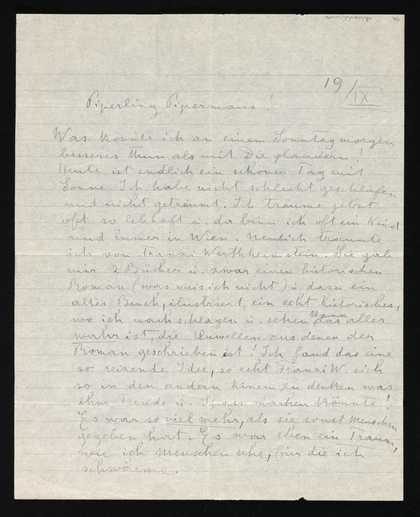 19/IX
Piperling Pipermaus!
Was könnte ich an einem Sonntag morgen
besseres thun als mit Dir plaudern!
Heute ist endlich ein schöner Tag mit
Sonne. Ich habe nicht schlecht geschlafen
und nicht geträumt. Ich träume jetzt
oft so lebhaft u. da bin ich oft ein Kind
und immer in Wien. Neulich träumte
ich von Franzi Wertheimstein. Sie gab
mir 2 Bücher u. zwar einen historischen
Roman (was weis ich nicht) u. dazu ein
altes Buch, illustriert, ein echt historisches,
wo ich nachschlagen u. sehen das alles
wahr ist, die Quwellen aus denen der
Roman geschrieben ist! Ich fand das eine
so reizende Idee, so echt Franzi W. sich
so in den andern hinein zu denken was
ihm Freude u. Spass machen könnte!
Es war so viel mehr, als sie sonst Menschen
gegeben hat. Es war eben ein Traum,
wie ich Menschen sehe, für die ich
schwärme.